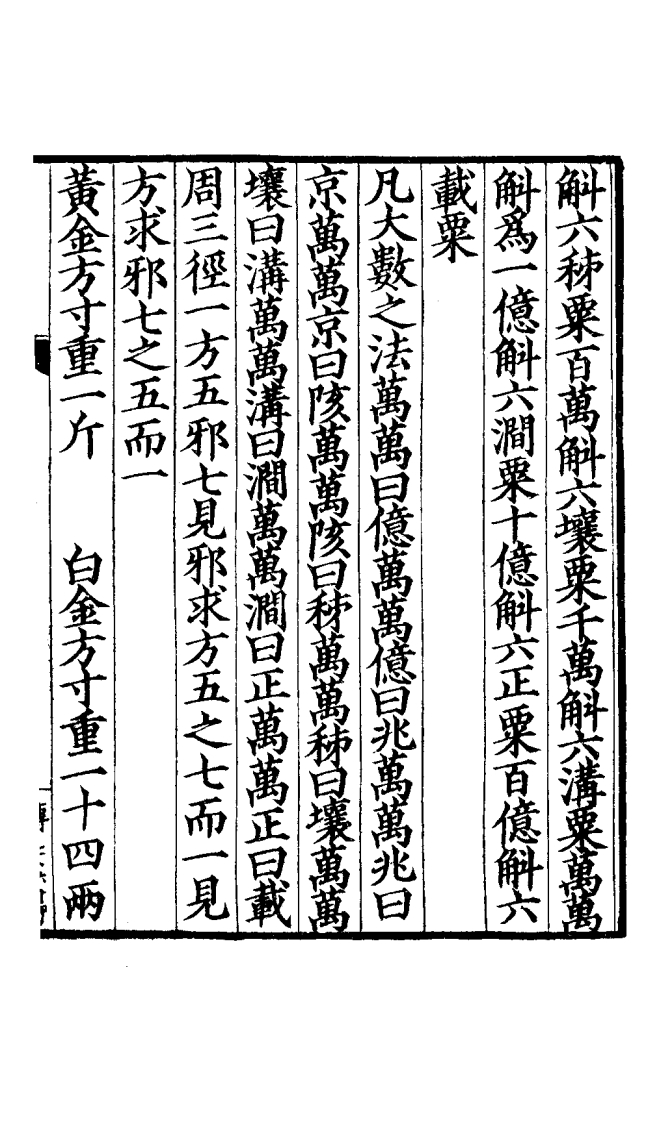 斛六秭粟百萬斛六壤粟千萬斛六溝粟萬萬
斛爲一億斛六澗粟十億斛六正粟百億斛六
載粟
凡大數之法萬萬曰億萬萬億曰兆萬萬兆曰
京萬萬京曰陔萬萬陔曰秭萬萬秭曰壤萬萬
壤曰溝萬萬溝曰澗萬萬澗曰正萬萬正曰載
周三徑一方五邪七見邪求方五之七而一見
方求邪七之五而一
黃金方寸重一斤　白金方寸重一十四兩